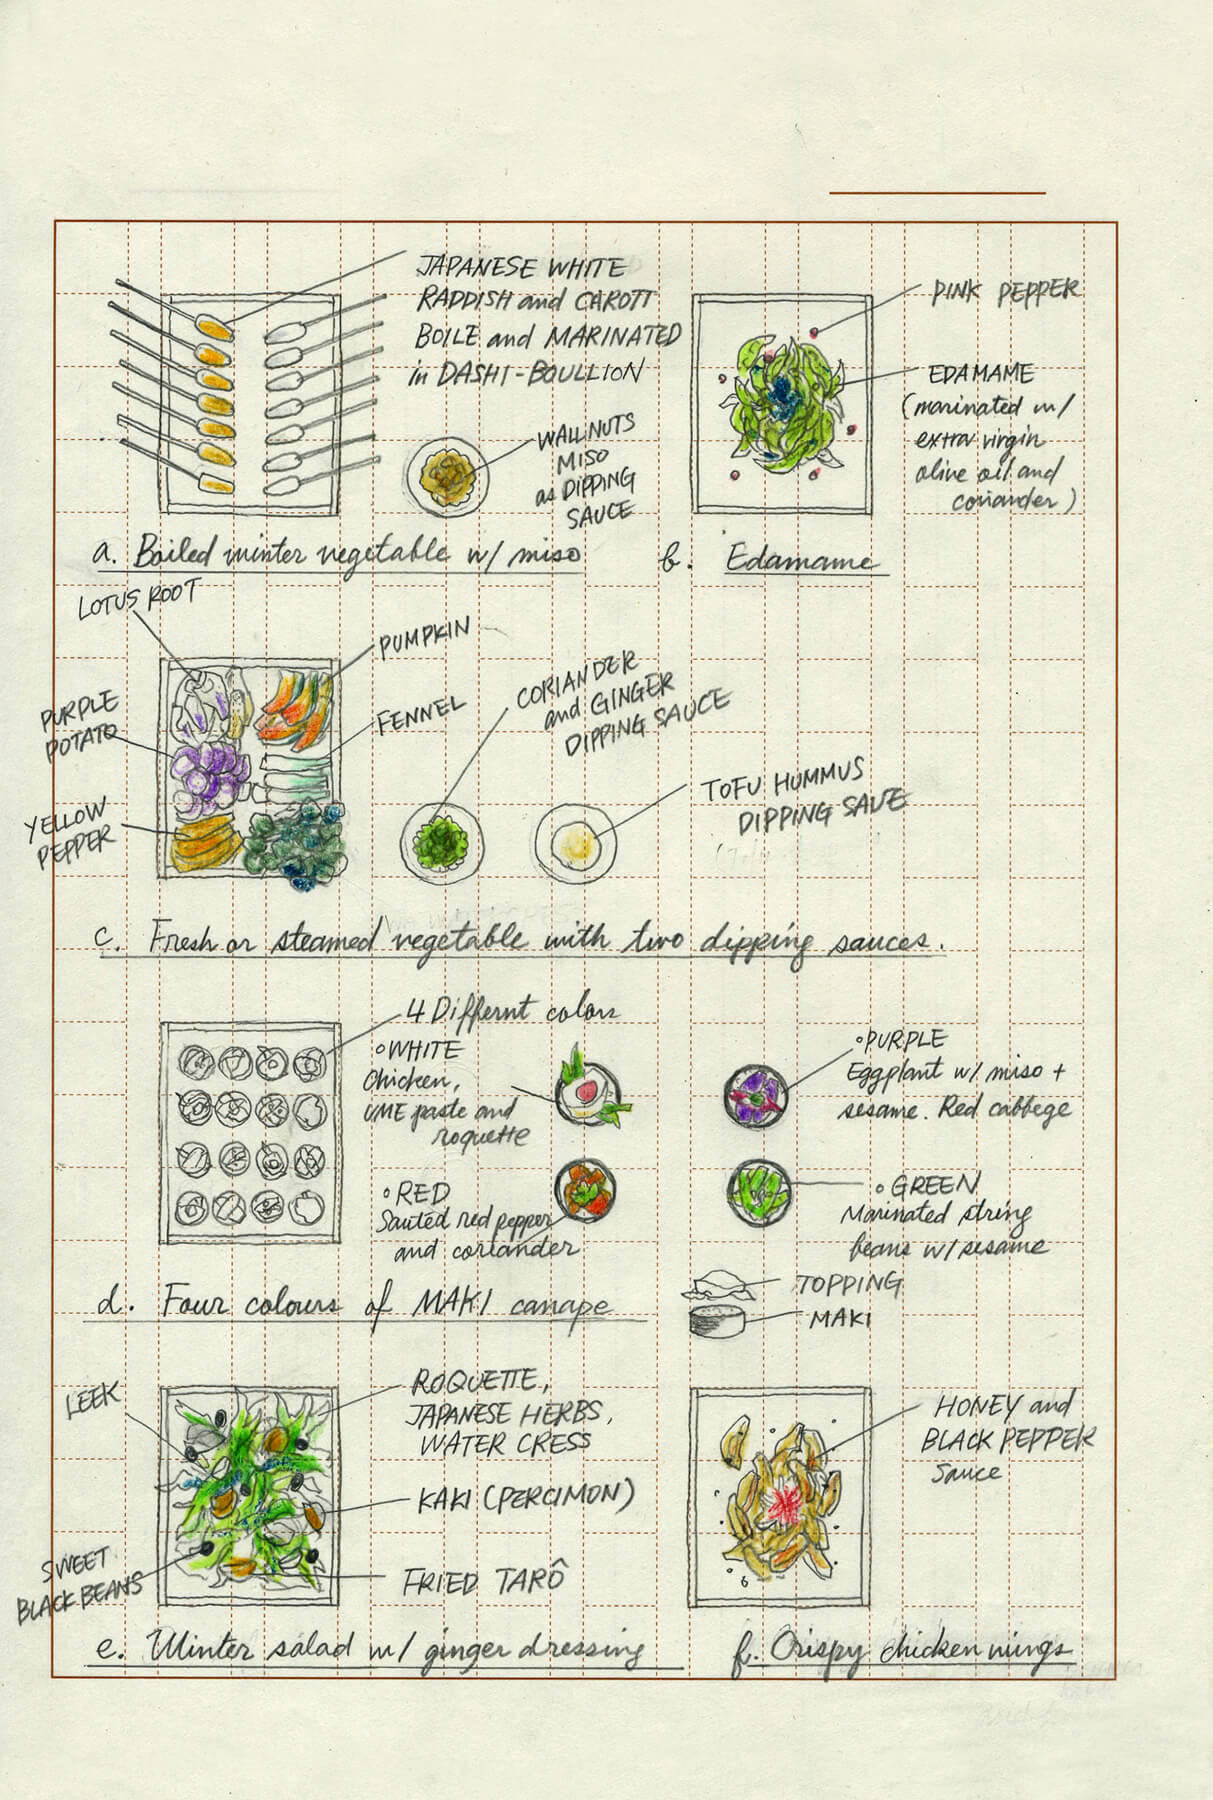 JAPANESE WHITE
RADDISH and CAROTT
BOILE and MARINATED
in DASHI-BOULLION
WALLNUTS
MISO
as DIPPING
SAUCE
a. Boiled winter vegetable w/ miso
PINK PEPPER
EDAMAME
(marinated w/
extra virgin
olive oil and
coriander)
b. Edamame
LOTUS ROOT
PUMPKIN
PURPLE
POTATO
FENNEL
YELLOW
PEPPER
CORIANDER
and GINGER
DIPPING SAUCE
TOFU HUMMUS
DIPPING SAUE
c. Fresh or steamed vegetable with two dipping sauces.
4 Differnt colors
○WHITE
Chicken,
UME paste and
roquette
○RED
Sauted red pepper
and coriander
○PURPLE
Eggplant w/ miso +
sesame. Red cabbege
○GREEN
Marinated string
beans w/ sesame
d. Four colours of MAKI canape
TOPPING
MAKI
LEEK
ROQUETTE,
JAPANESE HERBS,
WATER CRESS
KAKI (PERCIMON)
SWEET
BLACK BEANS
FRIED TARÔ
e. Winter salad w/ ginger dressing
HONEY and
BLACK PEPPER
Sauce
f. Crispy chicken wings